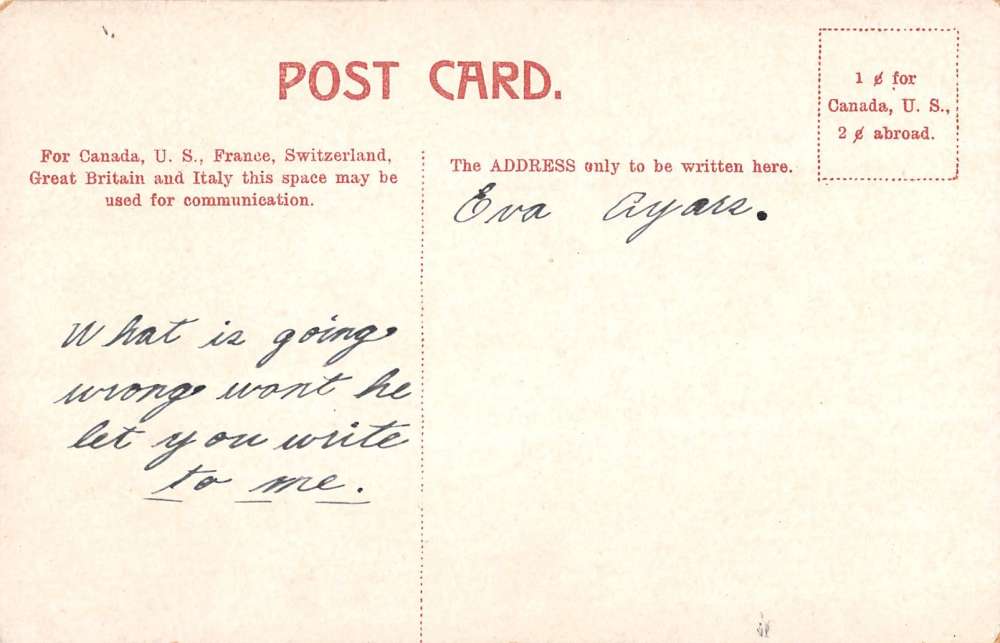 POST CARD.
1 ¢ for
Canada, U. S.,
2 ¢ abroad.
For Canada, U. S., France, Switzerland,
Great Britain and Italy this space may be
used for communication.
The ADDRESS only to be written here.
Eva Ayars.
What is going
wrong wont he
let you write
to me.